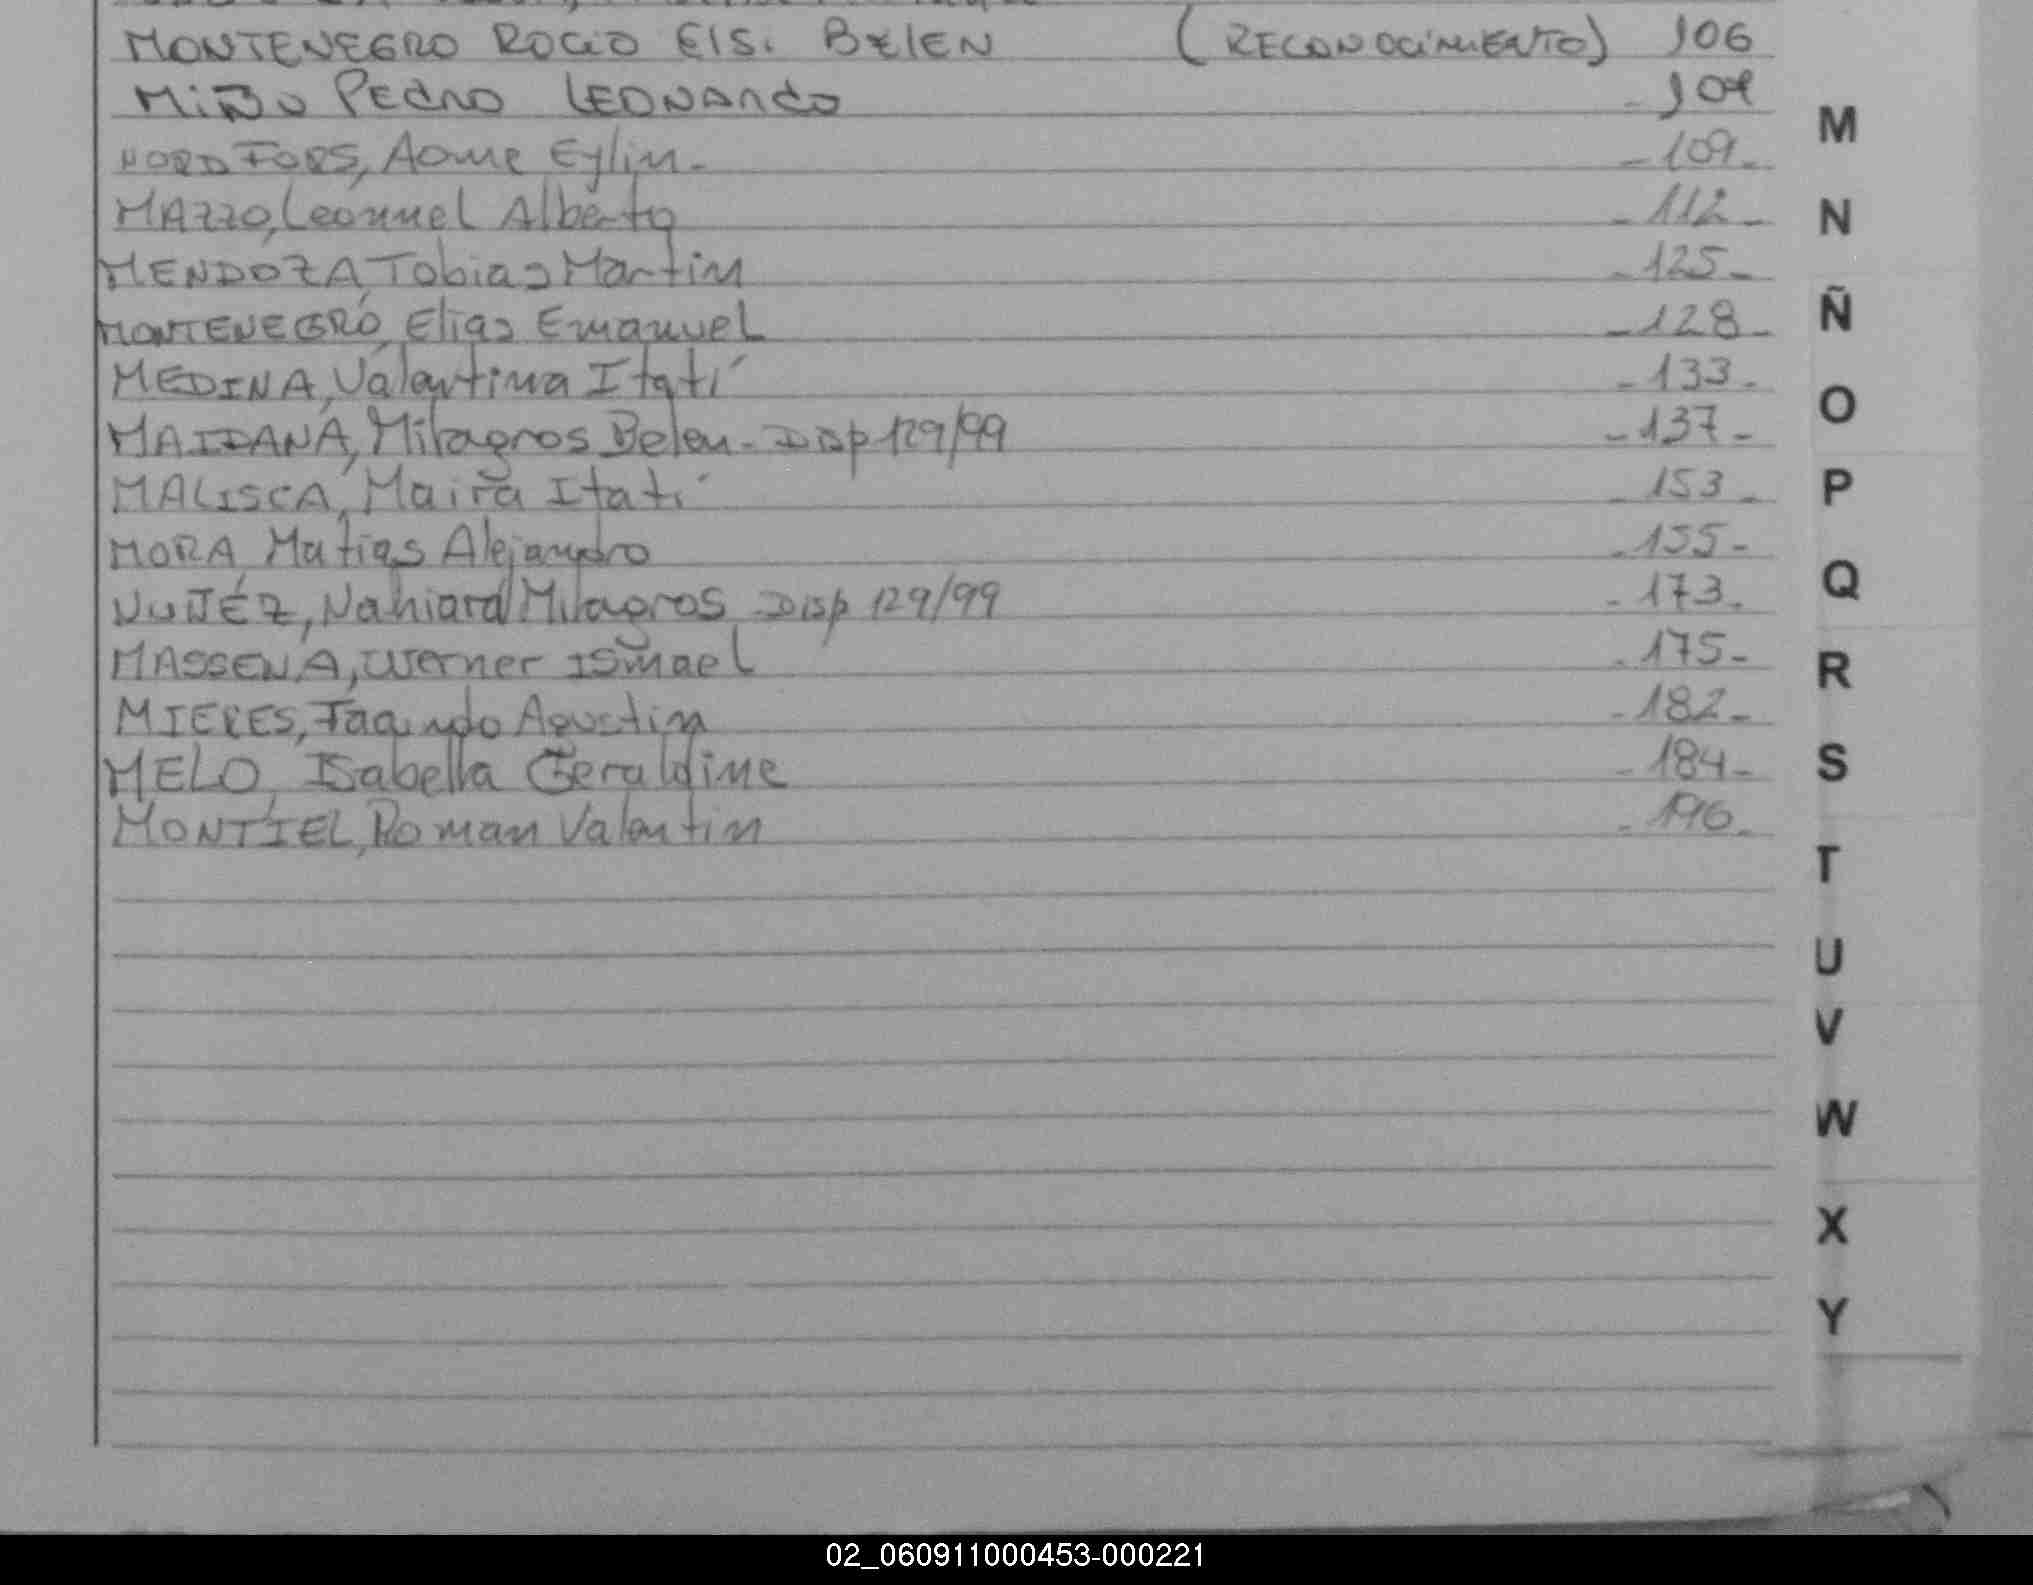 MONTENEGRO ROCIO ELS. BELEN (RECONOCIMIENTO) 106
MIÑO PEDRO LEONARDO - 107
NORD FORS, Aome Eylin. - 109 -
MAZZO, Leonnel Alberto - 112 -
MENDOZA, Tobias Martin - 125 -
MONTENEGRO, Elias Emanuel - 128 -
MEDINA, Valentina Itatí - 133 -
MAIDANA, Milagros Belen - Disp 129/99 - 137 -
MALISCA, Maira Itatí - 153 -
MORA, Matias Alejandro - 155 -
NUÑEZ, Nahiara Milagros Disp 129/99 - 173 -
MASSENA, Werner Ismael - 175 -
MIERES, Facundo Agustin - 182 -
MELO, Isabella Geraldine - 184 -
MONTIEL, Roman Valentin - 196 -
M
N
Ñ
O
P
Q
R
S
T
U
V
W
X
Y
02_060911000453-000221